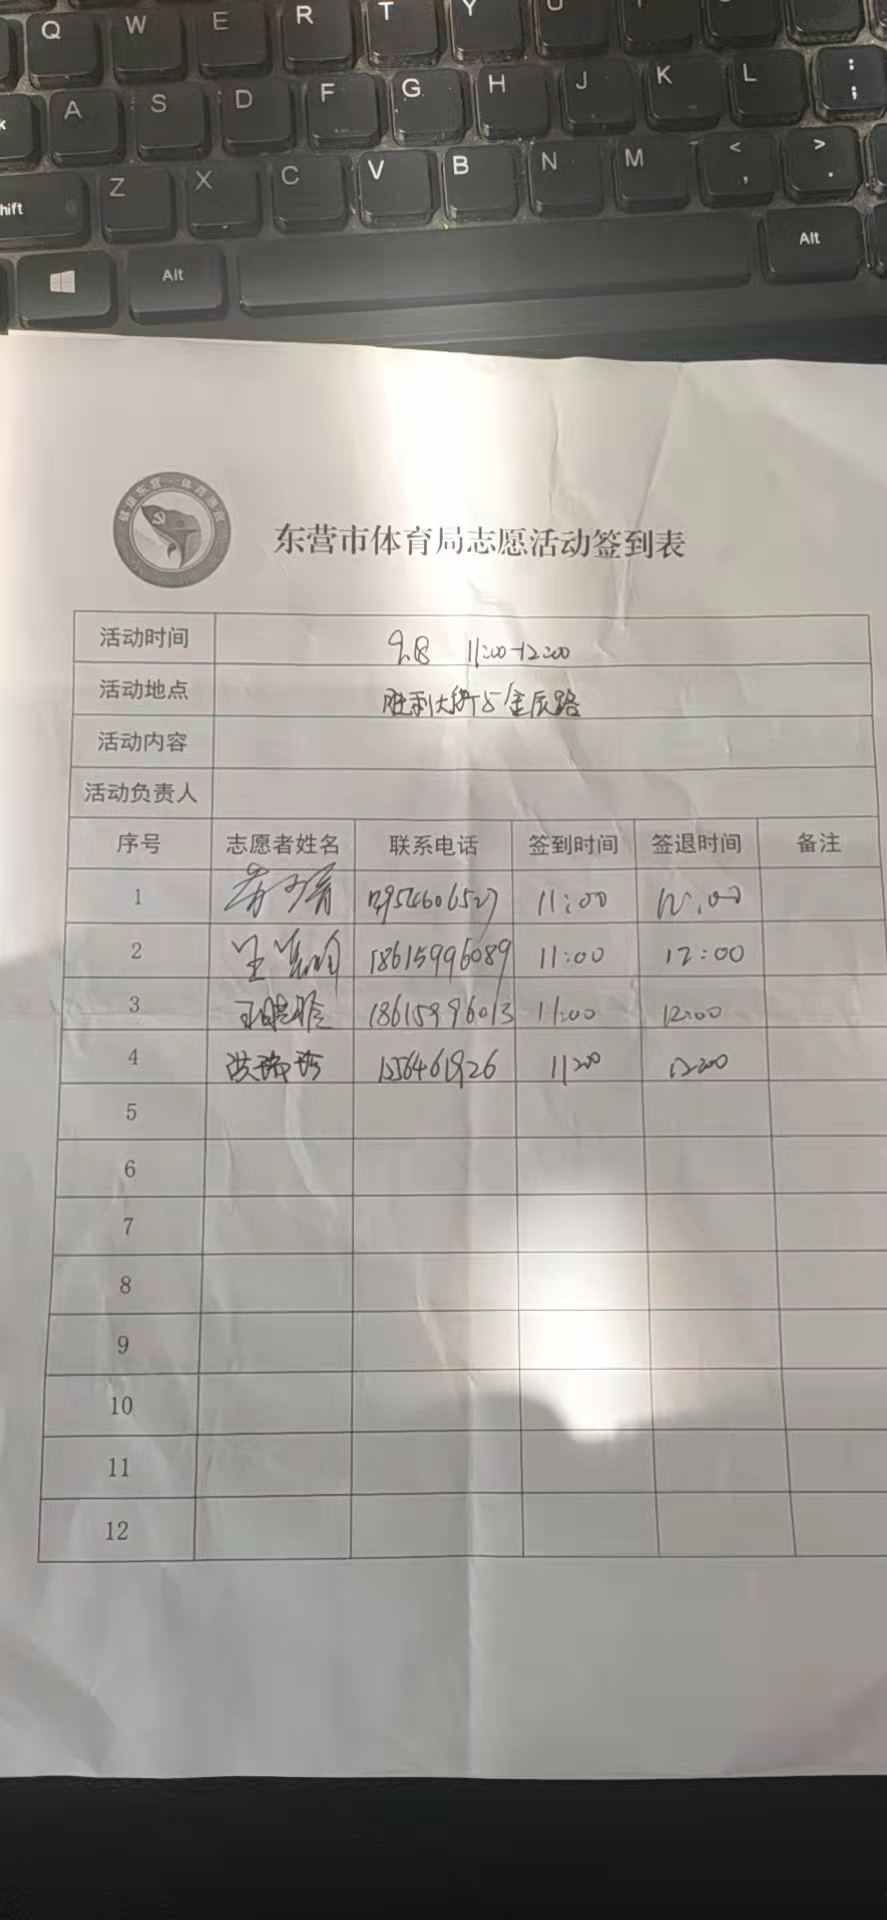 Q W E R T Y U
k A S D F G H J K L : ;
hift Z X C V B N M < , > .
Alt Alt
东营市体育局志愿活动签到表
活动时间 9.18 11:00-12:00
活动地点 胜利大街与金辰路
活动内容
活动负责人
序号 志愿者姓名 联系电话 签到时间 签退时间 备注
1 11:00 12:00
2 18615996089 11:00 12:00
3 王晓玲 18615996013 11:00 12:00
4 洪瑞珍 11:00 12:00
5
6
7
8
9
10
11
12